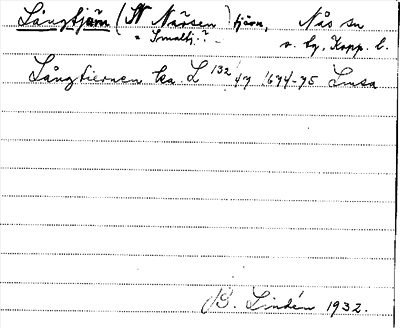 Långtjärn (N Näsen) tjärn, Nås sn
= Smaltj.? v. bg, Kopp. l.
Långtiernen ka. L 132/47 1674-75 Lmsa
B. Lindén 1932.